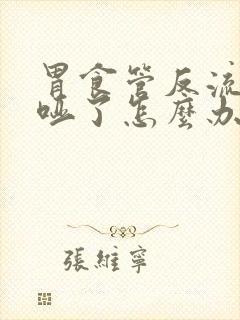 胃食管反流
哑了怎麽办
張維寧